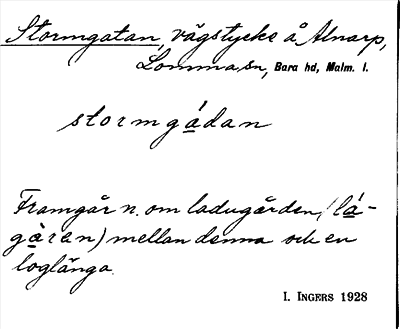 Stormgatan, vägstycke å Alnarp,
Lomma sn, Bara hd, Malm. l.
stormgádan
Framgår n. om ladugården (lá-
gàren) mellan denna och en
loglänga.
I. INGERS 1928